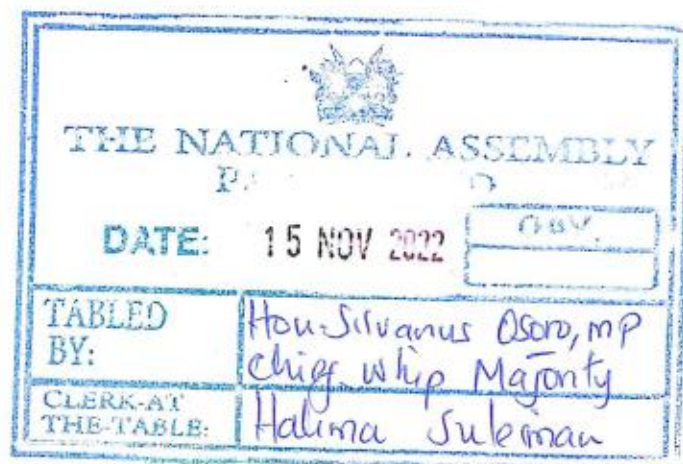 THE NATIONAL ASSEMBLY
DATE: 15 NOV 2022
TABLED BY: Hon. Silvanus Osoro, MP
Chief Whip Majority
CLERK-AT THE-TABLE: Halima Suleiman